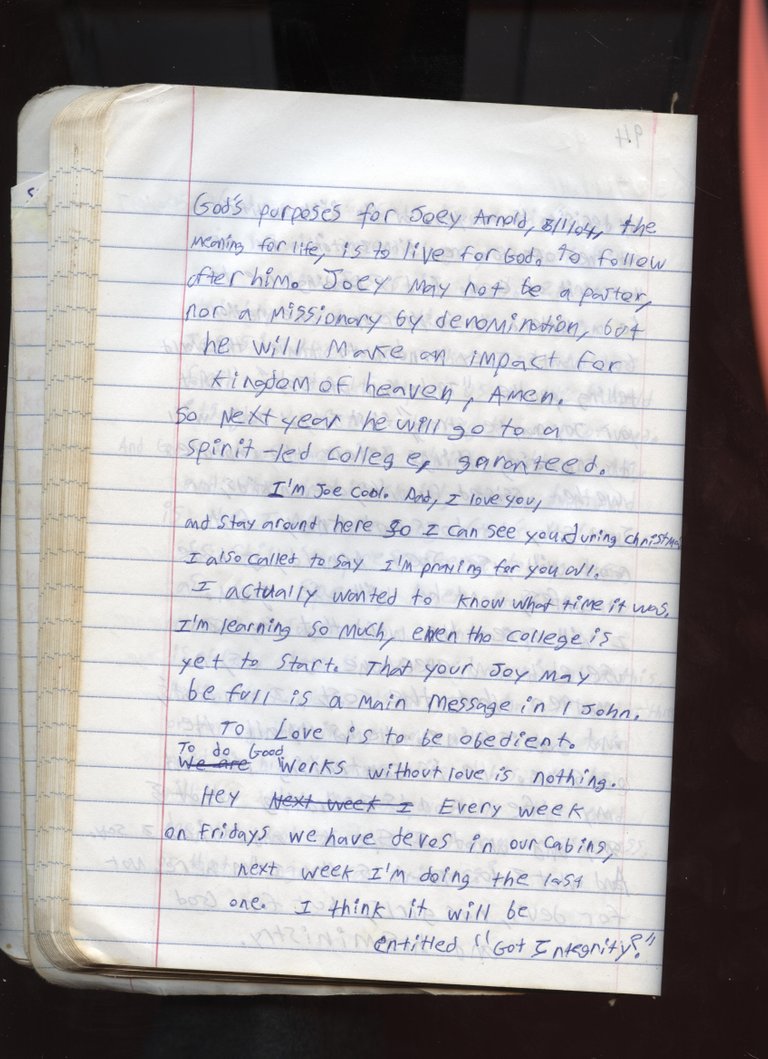 God's purposes for Joey Arnold, 8/1/04, the
meaning for life, is to live for God. To follow
after him. Joey may not be a paster,
nor a missionary by denomination, but
he will make an impact for
kingdom of heaven, Amen.
So next year he will go to a
spirit-led college, garanteed.
I'm Joe Cool. And, I love you,
and stay around here so I can see you during christmas
I also called to say I'm praying for you all.
I actually wanted to know what time it was.
I'm learning so much, even tho college is
yet to start. That your Joy may
be full is a main message in 1 John.
To Love is to be obedient.
To do Good
We are works without love is nothing.
Hey Next week I Every week
on Fridays we have devos in our cabins,
next week I'm doing the last
one. I think it will be
entitled "Got Integrity?"